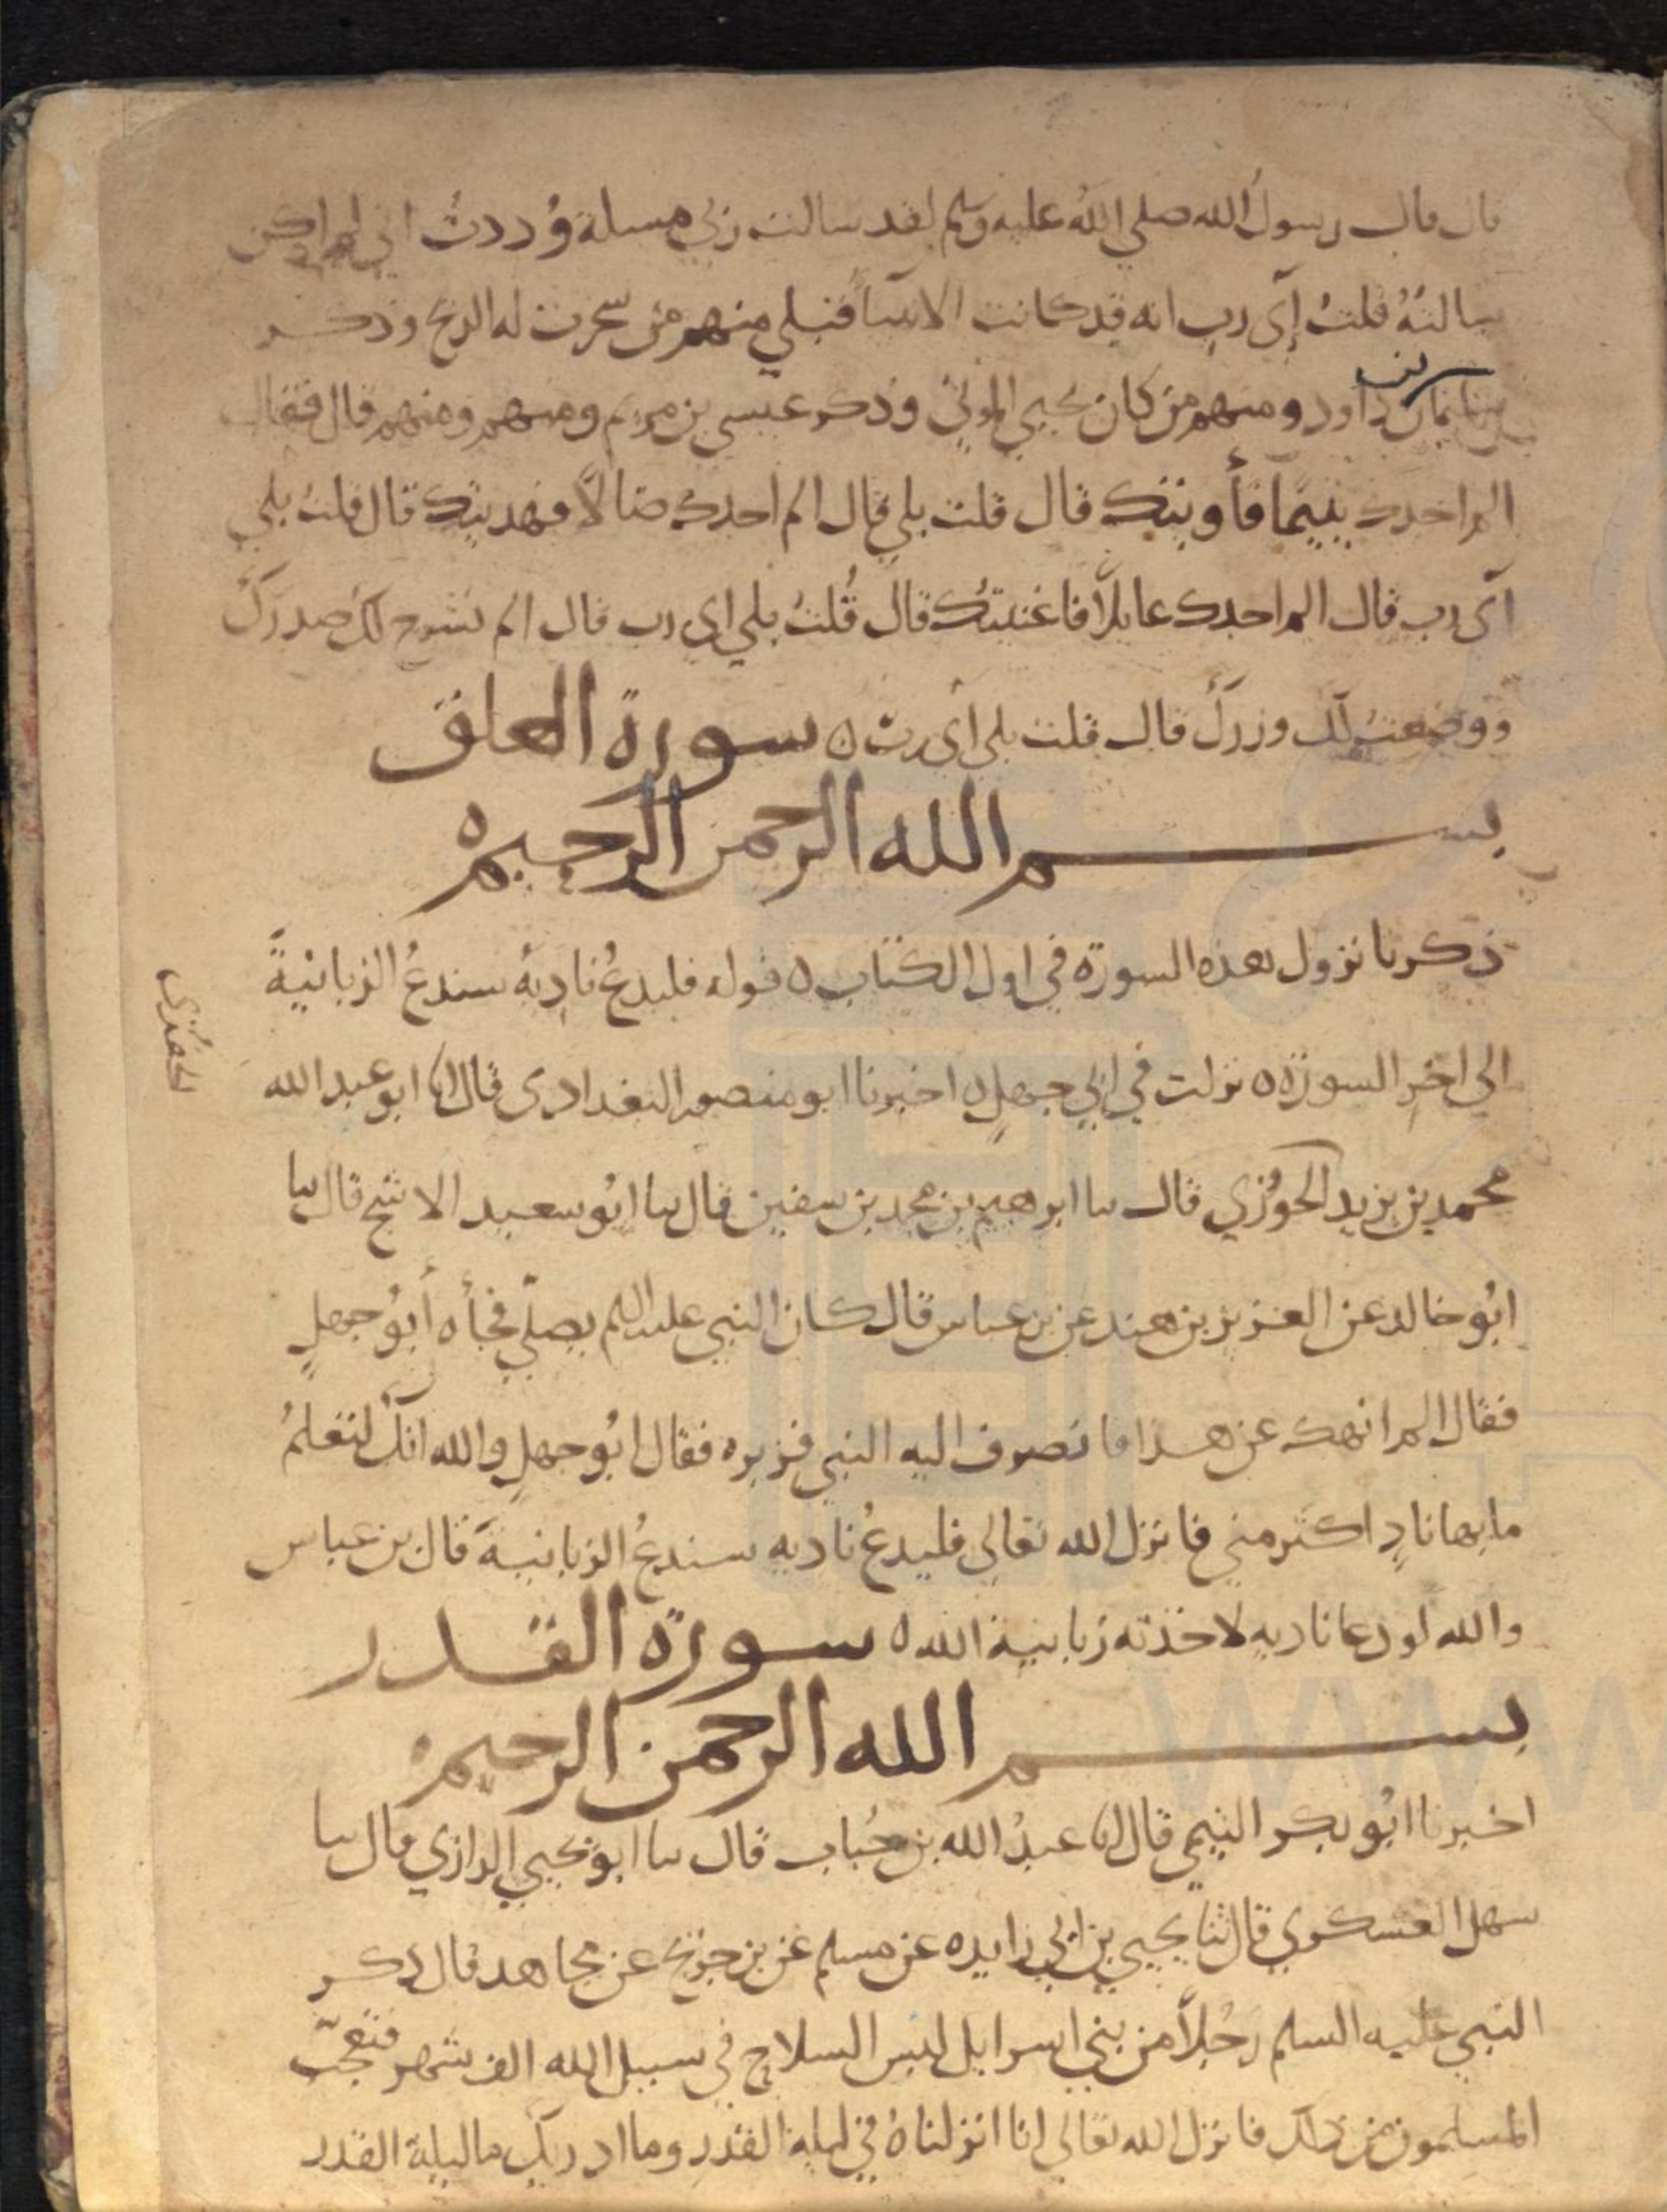 قال قال رسول الله صلي الله عليه وسلم لقد سالت ربي مسلة وددت اني لم اكن
سالته قلت اي رب انه قد كانت الانبيا قبلي منهم من سخرت له الريح وذكر
سليمان بن داود ومنهم من كان يحيي الموتي وذكر عيسي بن مريم ومنهم ومنهم قال فقال
الم اجدك يتيما فأويتك قال قلت بلي قال الم اجدك ضالا فهديتك قال قلت بلي
اى رب قال الم اجدك عايلا فاغنيتك قال قُلتُ بلي اى رب قال الم نشرح لك صدرك
ووضعت لك وزرك قال قلت بلي أى رب ه سورة العلق
بسم الله الرحمن الرحيم ه
ذكرنا نزول هذه السورة في اول الكتاب ه قوله فليدعُ ناديهُ سندعُ الزبانيةَ
الي اخر السورة ه نزلت في ابي جهل ه اخبرنا ابو منصور البغدادى قال انا ابو عبد الله
محمد بن يزيد الحوُزي قال سا ابرهيم بن محمد بن سفين قال سا ابُو سعيد الاشج قال سا
ابُو خالد عن العزيز بن هند عن بن عباس قال كان النبي عليه السلم يصلّي فجأه أبوُ جهلٍ
فقال الم انهك عن هذا فانصرف اليه النبي فزبره فقال ابُو جهلٍ والله انك لتعلمُ
ما بها نادٍ اكثر مني فانزل الله تعالي فليدعُ ناديه سندعُ الزبانيةَ قال بن عباس
والله لو دعا ناديه لاخذته زبانية الله ه سورة القدر
بسم الله الرحمن الرحيم ه
اخبرنا ابُو بكر التيمي قال انا عبدُ الله بن حُباب قال سا ابو يحيي الرازي قال سا
سهل العسكري قال ثنا يحيي بن ابي زايده عن مسلم عن بن جريج عن مجاهد قال ذكر
النبي عليه السلم رجُلاً من بني اسرايل لبس السلاح في سبيل الله الف شهر فتعجّب
المسلمون من ذلك فانزل الله تعالي انا انزلناهُ في ليلة القدر وما ادريك ما ليلة القدر